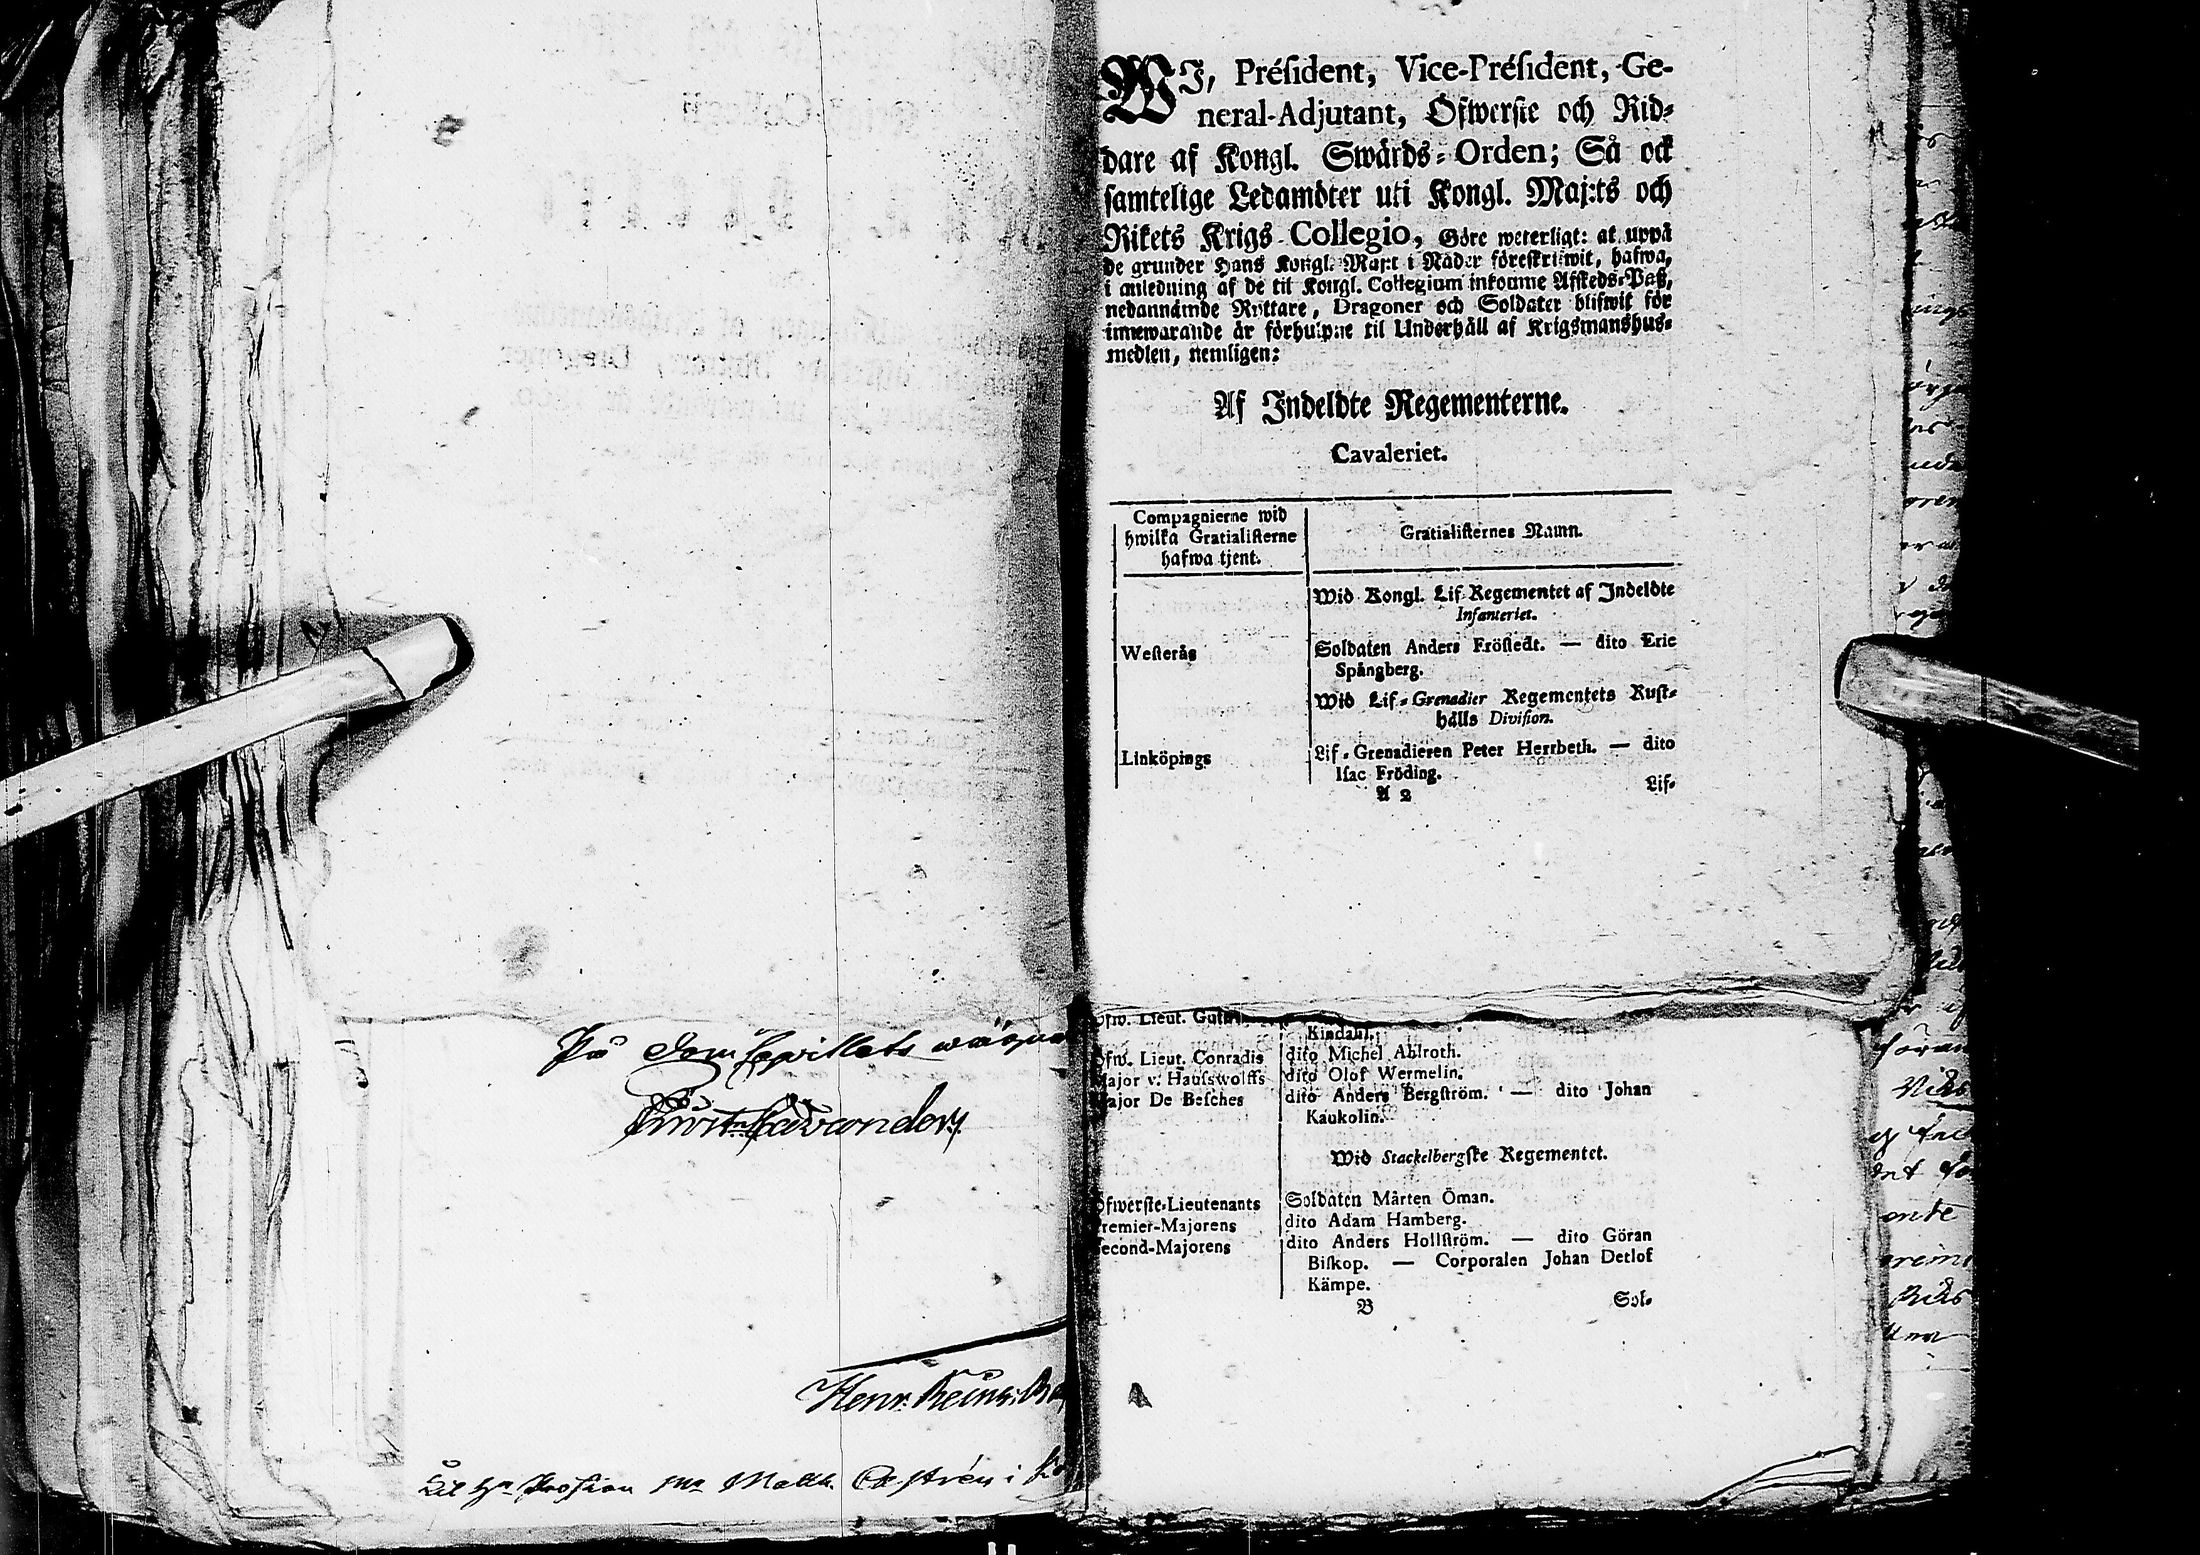 På
Henr.
Matth. Castrén i
WJ, Présìdent, Vice-Présìdent, Ge-
neral-Adjutant, Öfwerste och Rid-
dare af Kongl. Swärds-Orden; Så ock
samtelige Ledamöter uti Kongl. Maj:ts och
Rikets Krigs-Collegio, Göre weterligt: at uppå
de grunder Hans Kongl. Maj:t i Nåder föreskrifwit, hafwa,
i anledning af de til Kongl. Collegium inkomne Afskeds-Paß,
nedannämde Ryttare, Dragoner och Soldater blifwit för
innewarande år förhulpne til Underhåll af Krigsmanshus-
medlen, nemligen:
Af Indeldte Regementerne.
Cavaleriet.
Compagnierne wid
hwilka Gratialisterne
hafwa tjent.
Gratialisternes Namn.
Wid Kongl. Lif-Regementet af Indeldte
Infanteriet.
Westerås
Soldaten Anders Fröstedt. — dito Eric
Spångberg.
Wid Lif-Grenadier Regementets Rust-
hålls Division.
Linköpings
Lif-Grenadieren Peter Herrbeth. — dito
Isac Fröding.
A 2
Lif-
Öfw. Lieut.
Kindahl.
Öfw. Lieut. Conradis
dito Michel Ahlroth.
Major v. Hausswolffs
dito Olof Wermelin.
Major De Besches
dito Anders Bergström. — dito Johan
Kaukolin.
Wid Stackelbergske Regementet.
Öfwerste-Lieutenants
Soldaten Mårten Öman.
Premier-Majorens
dito Adam Hamberg.
Second-Majorens
dito Anders Hollström. — dito Göran
Biskop. — Corporalen Johan Detlof
Kämpe.
B
Sol-